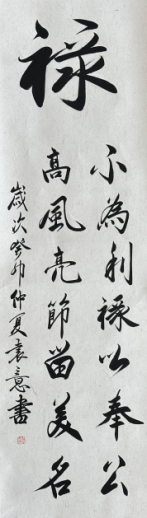 禄
不為利禄以奉公
高風亮節留美名
歲次癸卯仲夏袁意書